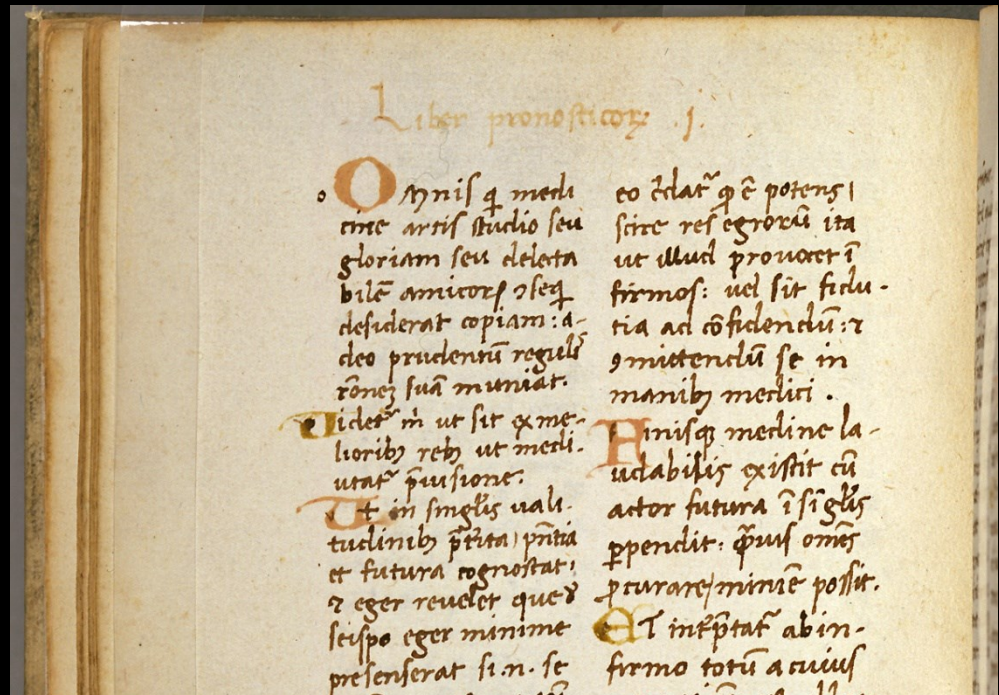 Liber pronosticoꝝ .j.
o Omnis q̇ medi
cine artis studio seu
gloriam seu delecta
bilē amicorꝝ ꝯseq̇
desiderat copiam: a-
deo prudentū regulis
rōneꝫ suā muniat.
Uidet᷑ m̄ ut sit ex me-
lioribꝫ rebꝫ ut medi.
utat᷑ p̄uisione.
Et in singl̄is uali.
tudinibꝫ p̄t̄ita, pn̄tia
et futura cognoscat:
⁊ eger reuelet que
seipo eger minime
presenserat si.n. se
eo c̄elat᷑ ꝙ ē potens
scire res egrorū ita
ut illud prouocet ī
firmos: uel sit fidu-
tia ad cōfidendū: ⁊
ꝯmittendū se in
manibꝫ medici.
Finisqꝫ medine la-
udabilis existit cū
actor futura ī sīgl̄is
ꝑpendit: q̄ᷓuis om̄es
ꝓcurare, minīe possit.
ET int̄p̄tat᷑ ab in-
firmo totū a cuius